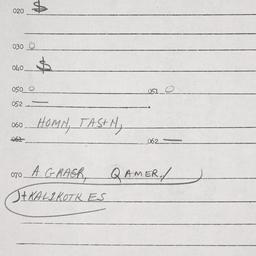 020 $
030 0
040 $
050 0 051 0
052 — .
060 HOMN, TASTN,
061 062 —
070 A GRAGR, QAMER,/
)+KALIKOTR ES